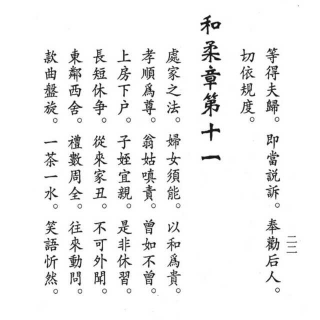 等得夫歸。即當説訴。奉勸后人。
切依規度。
和柔章第十一
處家之法。婦女須能。以和爲貴。
孝順爲尊。翁姑嗔責。曾如不曾。
上房下户。子姪宜親。是非休習。
長短休争。從來家丑。不可外聞。
東鄰西舍。禮數周全。往來動問。
款曲盤旋。一茶一水。笑語忻然。